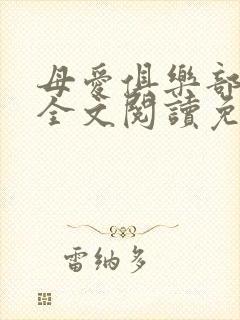 母愛俱樂部
全文閱讀免
雷納多